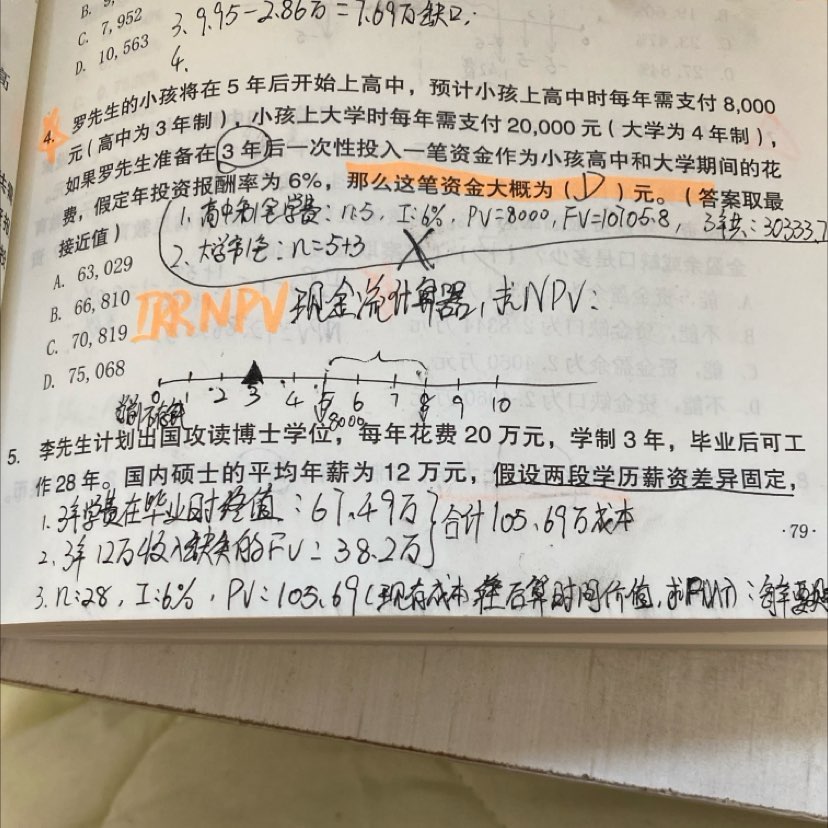 B. 9,
C. 7,952
D. 10,563
3. 9.95-2.86万=7.69万缺口;
4.
4. 罗先生的小孩将在5年后开始上高中，预计小孩上高中时每年需支付8,000
元（高中为3年制），小孩上大学时每年需支付20,000元（大学为4年制），
如果罗先生准备在3年后一次性投入一笔资金作为小孩高中和大学期间的花
费，假定年投资报酬率为6%，那么这笔资金大概为（ D ）元。（答案取最
接近值）
1. 高中 学费: n:5, I:6%, PV=8000, FV=10705.8, 3年共:30333.7
A. 63,029
2. 大学 : n=5+3 X
B. 66,810
IRR NPV 现金流计算器,求NPV:
C. 70,819
D. 75,068
0 1 2 3 4 5 6 7 8 9 10
8000
5. 李先生计划出国攻读博士学位，每年花费20万元，学制3年，毕业后可工
作28年。国内硕士的平均年薪为12万元，假设两段学历薪资差异固定，
1. 3年学费在毕业时终值:67.49万
合计105.69万成本
2. 3年12万收入缺失的FV=38.2万
·79·
3. n:28, I:6%, PV:105.69(现有成本 后算时间价值,求PMT):每年